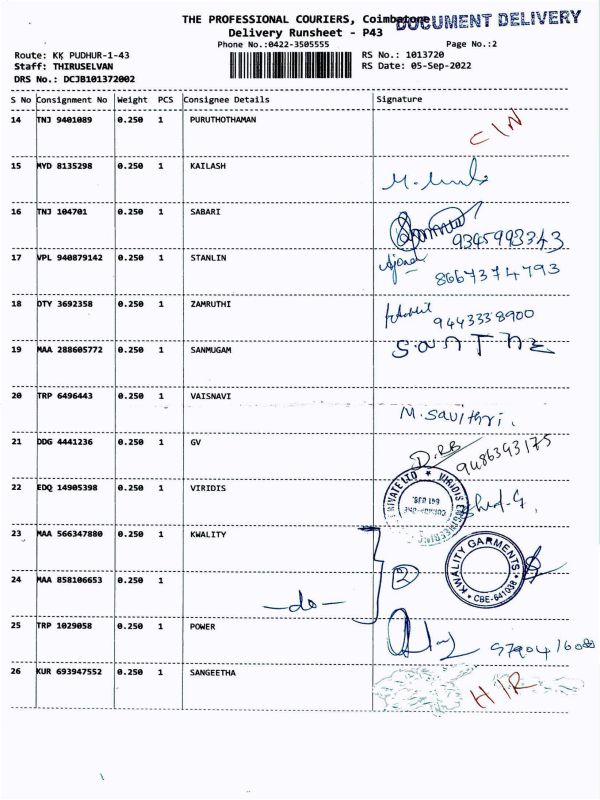 THE PROFESSIONAL COURIERS, Coimbatore
DOCUMENT DELIVERY
Delivery Runsheet - P43
Phone No.:0422-3505555
Page No.:2
Route: KK PUDHUR-1-43
RS No.: 1013720
Staff: THIRUSELVAN
RS Date: 05-Sep-2022
DRS No.: DCJB101372002
S No Consignment No Weight PCS Consignee Details Signature
14 TNJ 9401089 0.250 1 PURUTHOTHAMAN
C/N
15 MYD 8135298 0.250 1 KAILASH
16 TNJ 104701 0.250 1 SABARI
9345993343
17 VPL 940879142 0.250 1 STANLIN
8667374793
18 OTY 3692358 0.250 1 ZAMRUTHI
9443338900
19 MAA 288605772 0.250 1 SANMUGAM
20 TRP 6496443 0.250 1 VAISNAVI
M. Savithri.
21 DDG 4441236 0.250 1 GV
9486393175
22 EDQ 14905398 0.250 1 VIRIDIS
VIRIDIS ENGINEERING PRIVATE LTD
23 MAA 566347880 0.250 1 KWALITY
KWALITY GARMENTS
CBE-641038
24 MAA 858106653 0.250 1
-do-
2
25 TRP 1029058 0.250 1 POWER
26 KUR 693947552 0.250 1 SANGEETHA
H/R